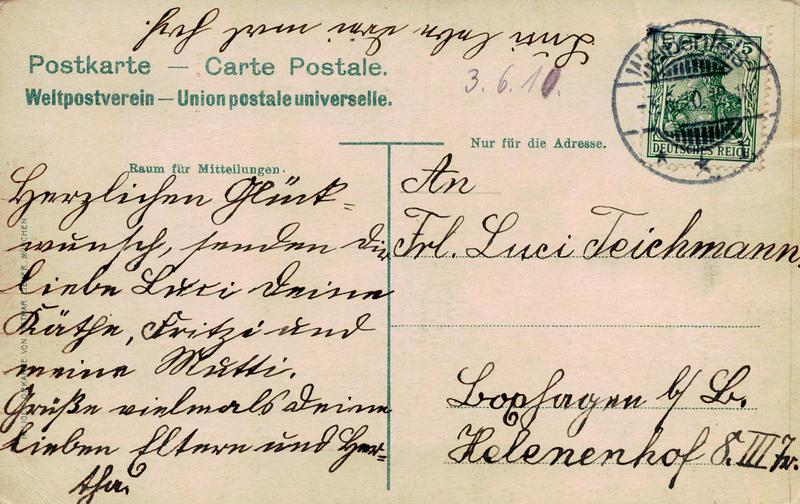 Luci lebe drei mal hoch
Postkarte — Carte Postale.
Weltpostverein — Union postale universelle.
3.6.10.
5
DEUTSCHES REICH
Nur für die Adresse.
Raum für Mitteilungen.
Herzlichen Glück=
wunsch, senden Dir
liebe Luci Deine
Käthe, Fritzi und
meine Mutti.
Grüße vielmals Deine
lieben Eltern und Her=
tha.
An
Frl. Luci Teichmann.
Boxhagen b/ B.
Helenenhof 8. III Tr.